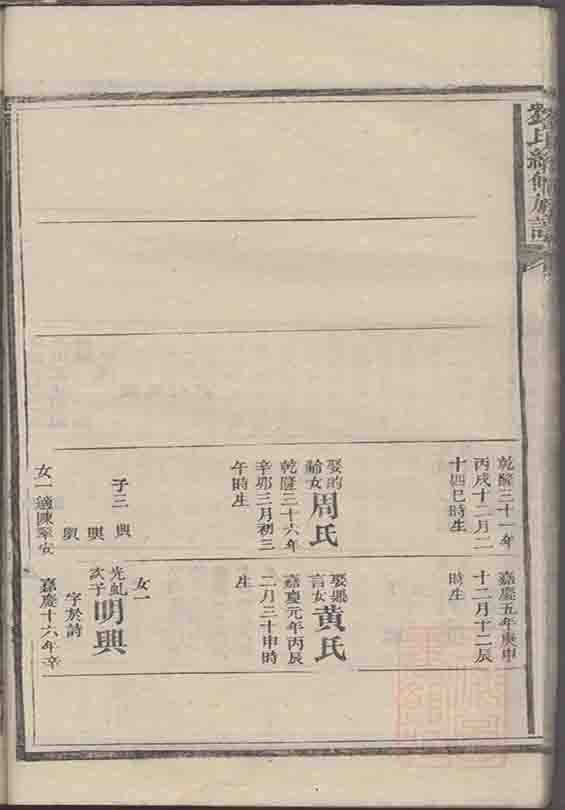 乾隆三十一年
丙戌十二月二
十四巳時生
周氏
乾隆三十六年
辛卯三月初三
午時生
子三
興
興
興
女一適陳
嘉慶五年庚申
十二月十二辰
時生
黃氏
嘉慶元年丙辰
二月三十申時
生
女一
光虬
次子
明興
字於詩
嘉慶十六年辛